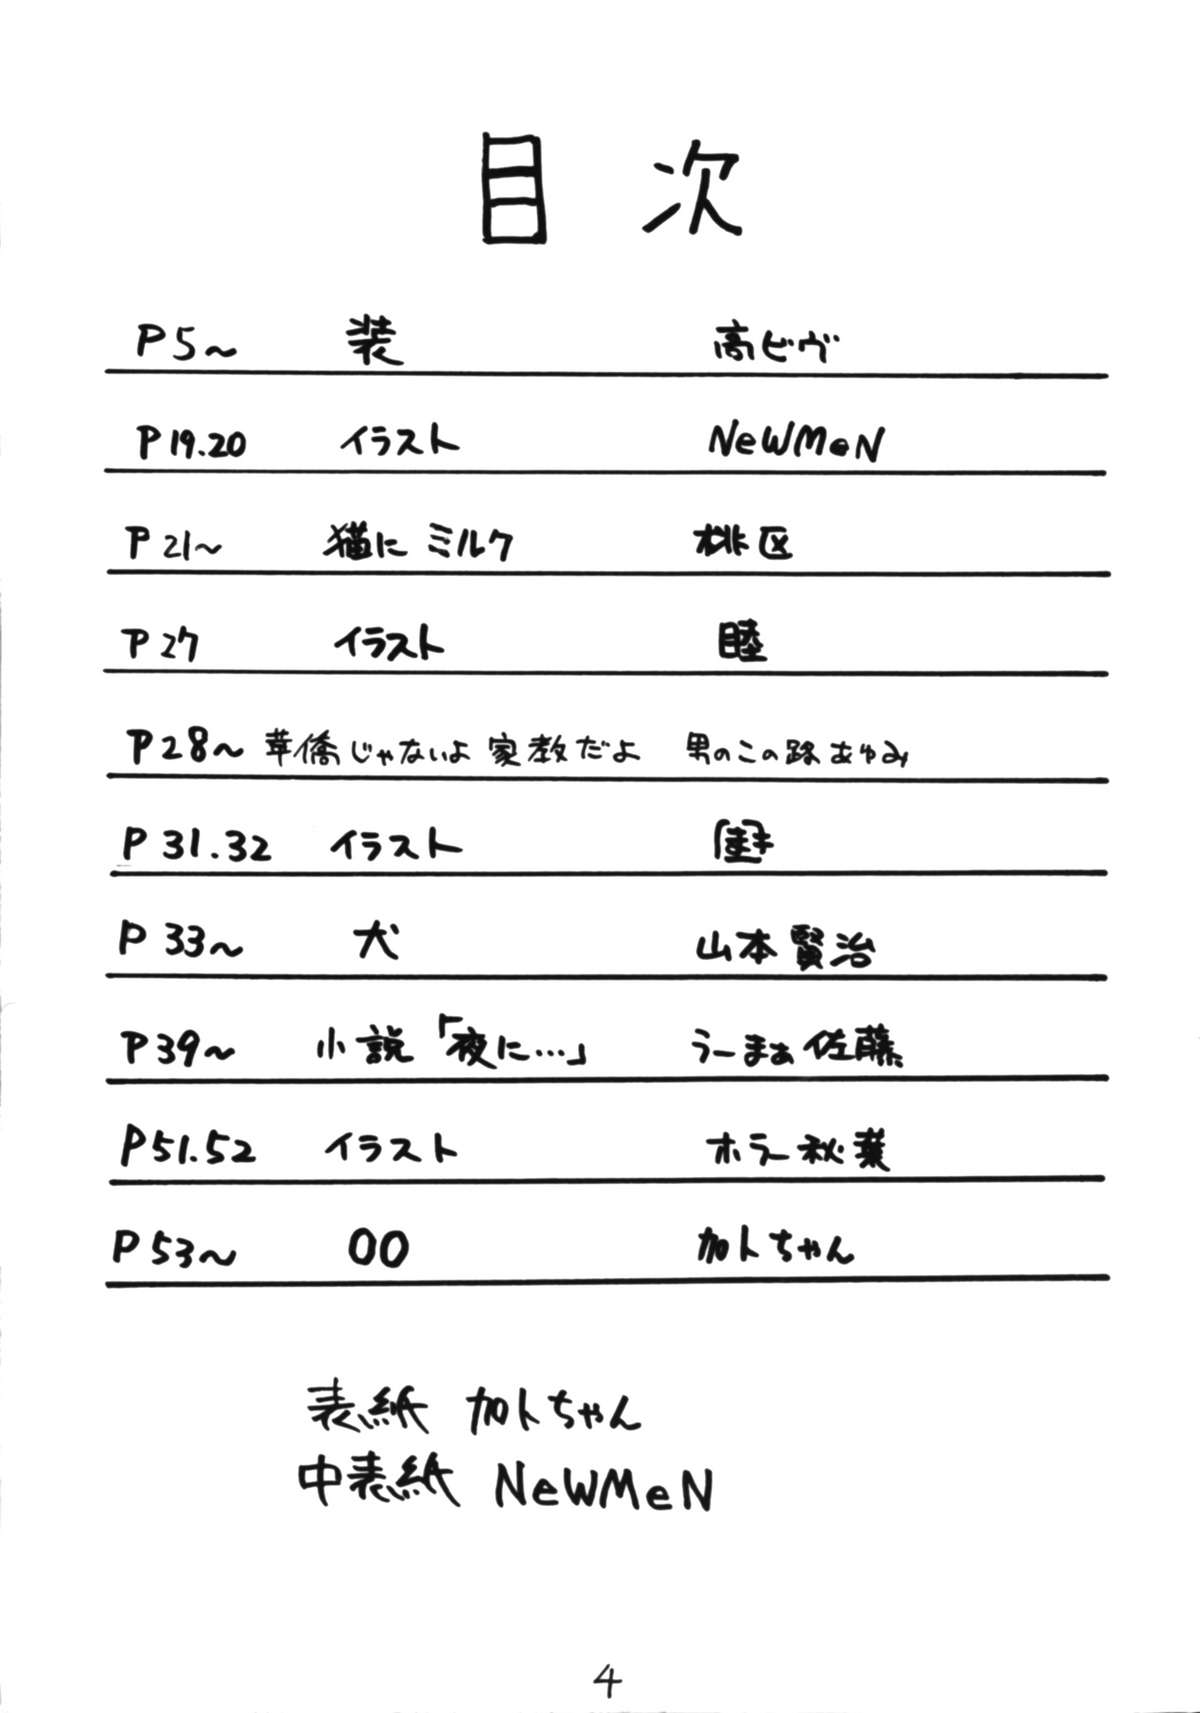 目次
P5~ 装 高ビヴ
P19.20 イラスト NeWMeN
P21~ 猫にミルク 桃区
P27 イラスト 睦
P28~ 華僑じゃないよ 家教だよ 男のこの路あゆみ
P31.32 イラスト
P33~ 犬 山本賢治
P39~ 小説「夜に…」 うーまぁ佐藤
P51.52 イラスト ホラー秋葉
P53~ 〇〇 加トちゃん
表紙 加トちゃん
中表紙 NeWMeN
4